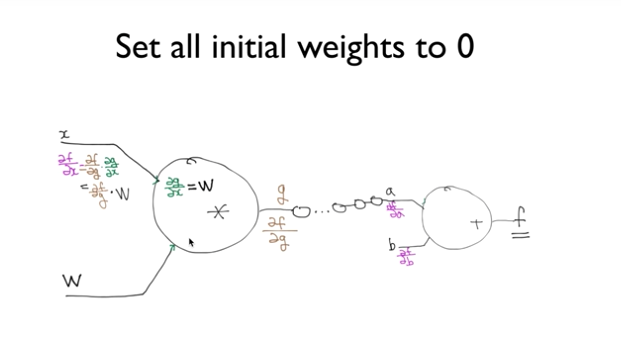 Set all initial weights to 0
x
∂f/∂x = ∂f/∂g · ∂g/∂x
= ∂f/g · W
∂g/∂x = W
*
g
∂f/∂g
...
a
∂f/∂a
+
f
b
∂f/∂b
W